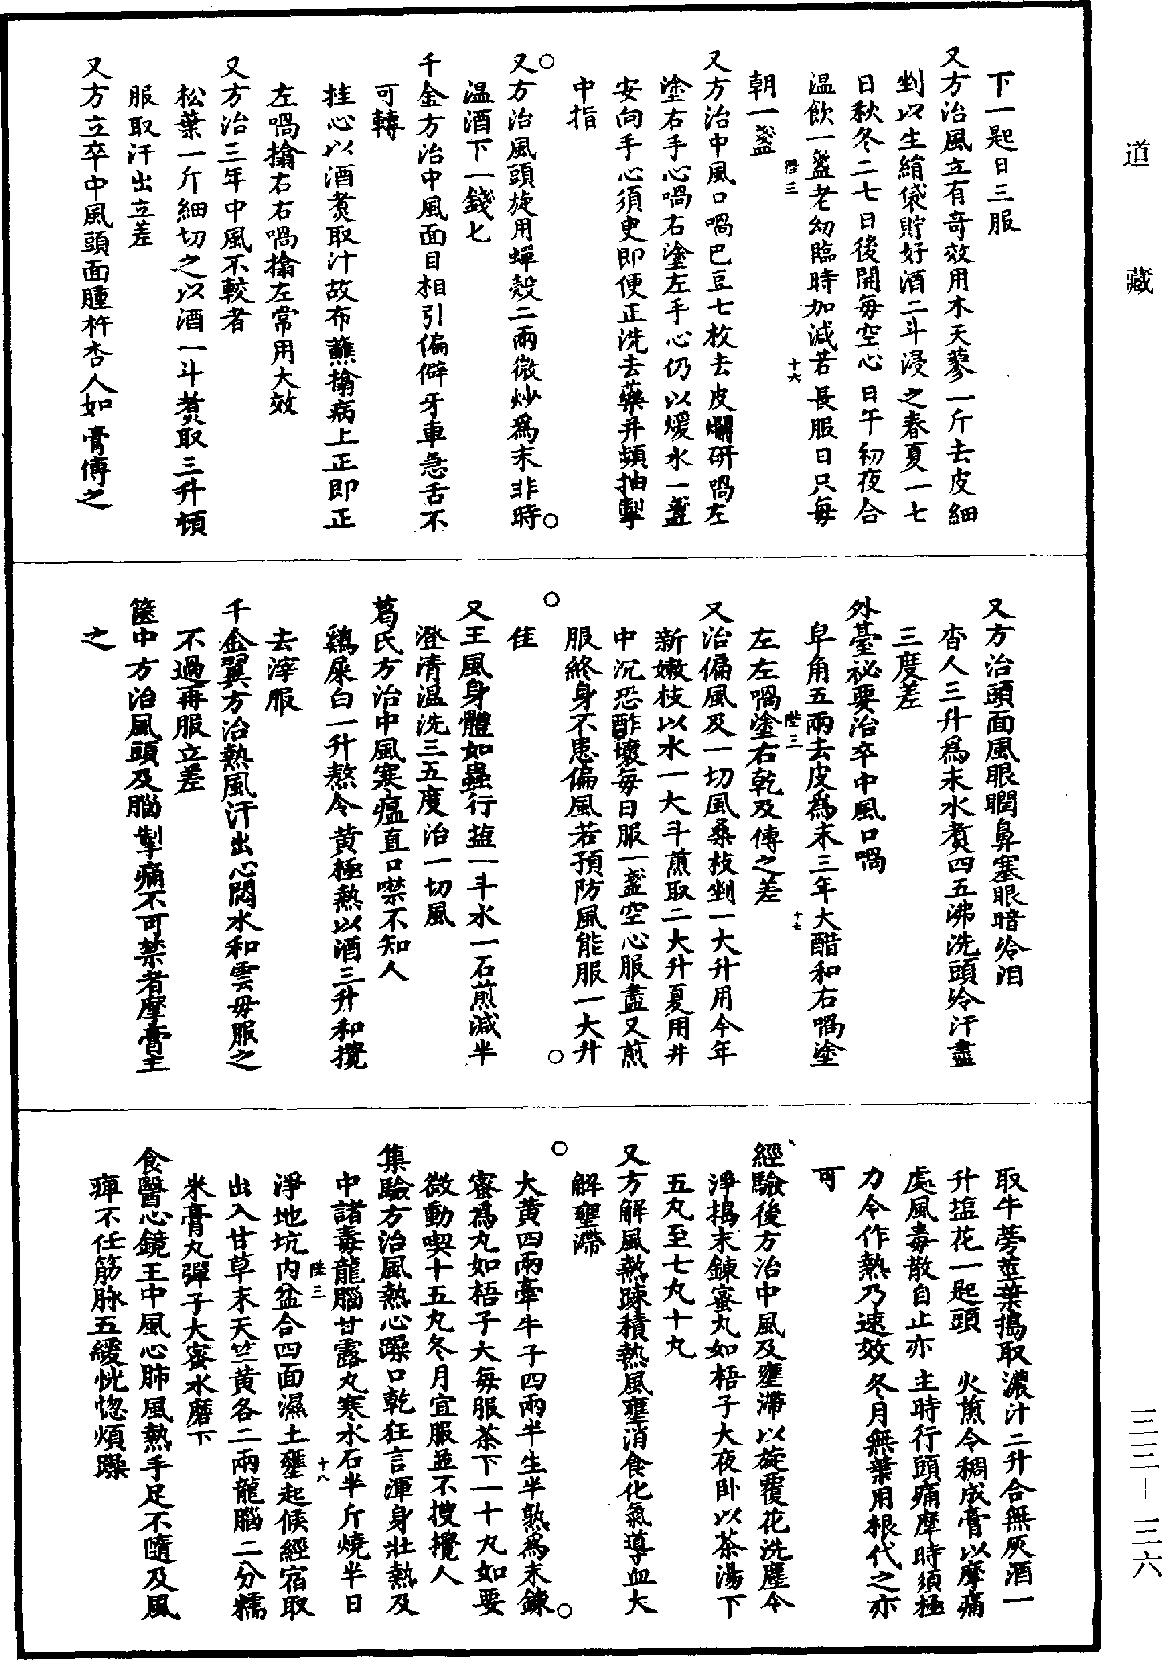 道藏
下一匙日三服
又方治風立有奇效用木天蓼一斤去皮細
剉以生絹袋貯好酒二斗浸之春夏一七
日秋冬二七日後開每空心日午初夜合
溫飲一盞老幼臨時加減若長服日只每
朝一盞
陛三
十六
又方治中風口喎巴豆七枚去皮爛研喎左
塗右手心喎右塗左手心仍以煖水一盞
安向手心須臾即便正洗去藥并頻抽掣
中指
又方治風頭旋用蟬殼二兩微炒為末非時
溫酒下一錢匕
千金方治中風面目相引偏僻牙車急舌不
可轉
桂心以酒煮取汁故布蘸搨病上正即正
左喎搨右右喎搨左常用大效
又方治三年中風不較者
松葉一斤細切之以酒一斗煮取三升頓
服取汗出立差
又方立卒中風頭面腫杵杏人如膏傅之
又方治頭面風眼瞤鼻塞眼暗冷泪
杏人三升為末水煮四五沸洗頭冷汗盡
三度差
外臺祕要治卒中風口喎
皁角五兩去皮為末三年大醋和右喎塗
左左喎塗右乾及傅之差
陛三
十七
又治偏風及一切風桑枝剉一大升用今年
新嫩枝以水一大斗煎取二大升夏用井
中沉恐酢壞每日服一盞空心服盡又煎
服終身不患偏風若預防風能服一大升
佳
又王風身體如蟲行鹽一斗水一石煎減半
澄清溫洗三五度治一切風
葛氏方治中風寒瘟直口噤不知人
鷄屎白一升熬令黃極熱以酒三升和攪
去滓服
千金翼方治熱風汗出心悶水和雲母服之
不過再服立差
篋中方治風頭及腦掣痛不可禁者摩膏主
之
取牛蒡莖葉搗取濃汁二升合無灰酒一
升鹽花一匙頭 火煎令稠成膏以摩痛
處風毒散自止亦 主時行頭痛摩時須極
力令作熱乃速效冬月無葉用根代之亦
可
經驗後方治中風及壅滯以旋覆花洗塵令
淨搗末鍊蜜丸如梧子大夜卧以茶湯下
五丸至七丸十丸
又方解風熱踈積熱風壅消食化氣導血大
解壅滯
大黃四兩牽牛子四兩半生半熟為末鍊
蜜為丸如梧子大每服茶下一十丸如要
微動喫十五丸冬月宜服並不搜攪人
集驗方治風熱心躁口乾狂言渾身壯熱及
中諸毒龍腦甘露丸寒水石半斤燒半日
淨地坑内盆合四面濕土壅起候經宿取
陛三
十八
出入甘草末天竺黃各二兩龍腦二分糯
米膏丸彈子大蜜水磨下
食醫心鏡王中風心肺風熱手足不隨及風
痺不任筋脉五緩恍惚煩躁
三三—三六